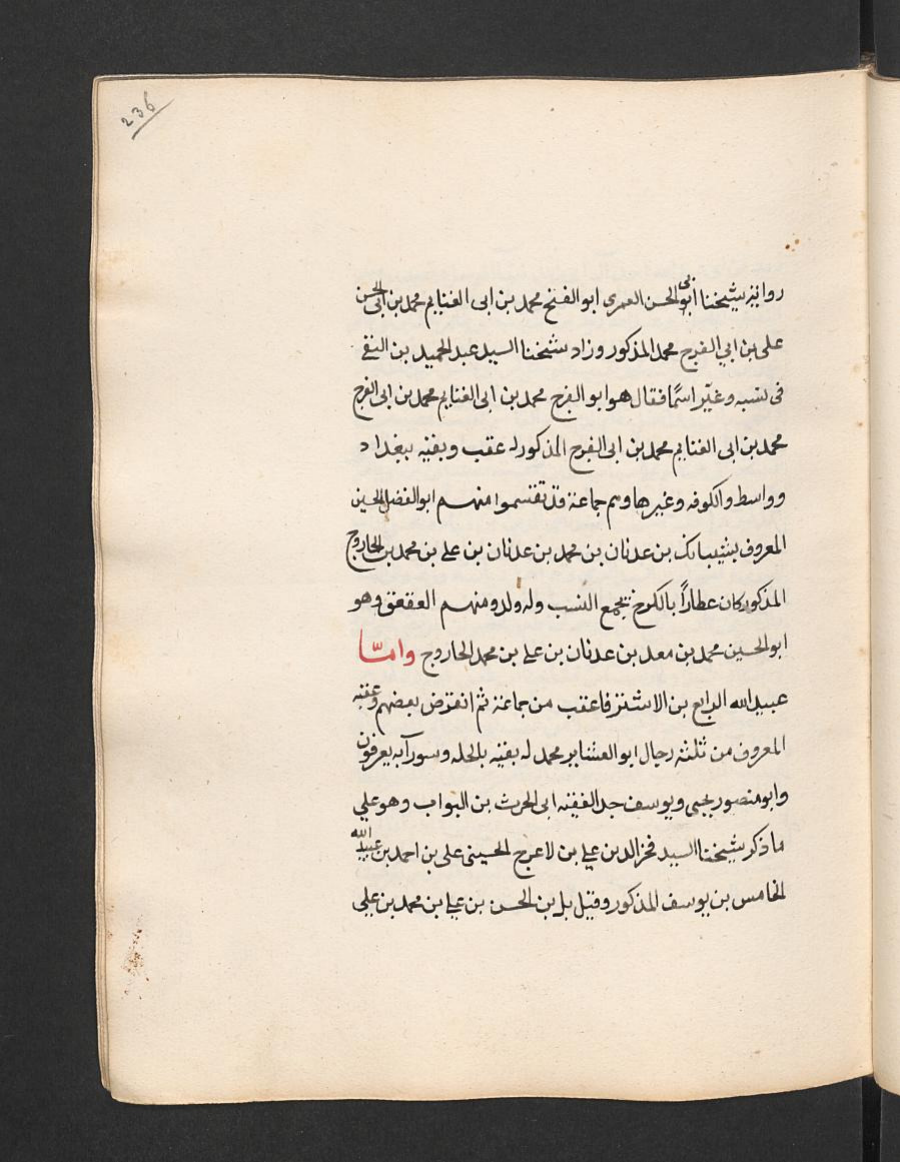 236
رواية شيخنا أبي الحسن العمرى ابو الفتح محمد بن ابى الغنايم محمد بن ابى الحسن
على بن ابي الفرج محمد المذكور وزاد شيخنا السيد عبد الحميد بن التقى
فى نسبه وغيّر اسمًا فقال هو ابو الفرج محمد بن ابى الغنايم محمد بن ابى الفرج
محمد بن ابى الغنايم محمد بن ابى الفرج المذكور له عقب وبقيه ببغداد
وواسط والكوفه وغيرها وهم جماعة قد تقسموا منهم ابو الفضل الحسين
المعروف بشيبانك بن عدنان بن محمد بن عدنان بن على بن محمد بن الحاروج
المذكور كان عطاراً بالكرخ يجمع النسب وله ولد ومنهم العقعق وهو
ابو الحسين محمد بن معد بن عدنان بن على بن محمد الحاروج وامّا
عبيد الله الرابع بن الاشتر فاعقب من جماعة ثم انقرض بعضهم وعقبه
المعروف من ثلثه رجال ابو العشاير محمد له بقيه بالحله وسورا به يعرفون
وابو منصور يحيى ويوسف جد الفقيه ابى الحرث بن البواب وهو على
ما ذكر شيخنا السيد فخر الدين على بن لاعرج الحسينى على بن احمد بن عبيد الله
لخامس بن يوسف المذكور وقيل بل بن الحسن بن على بن محمد بن على